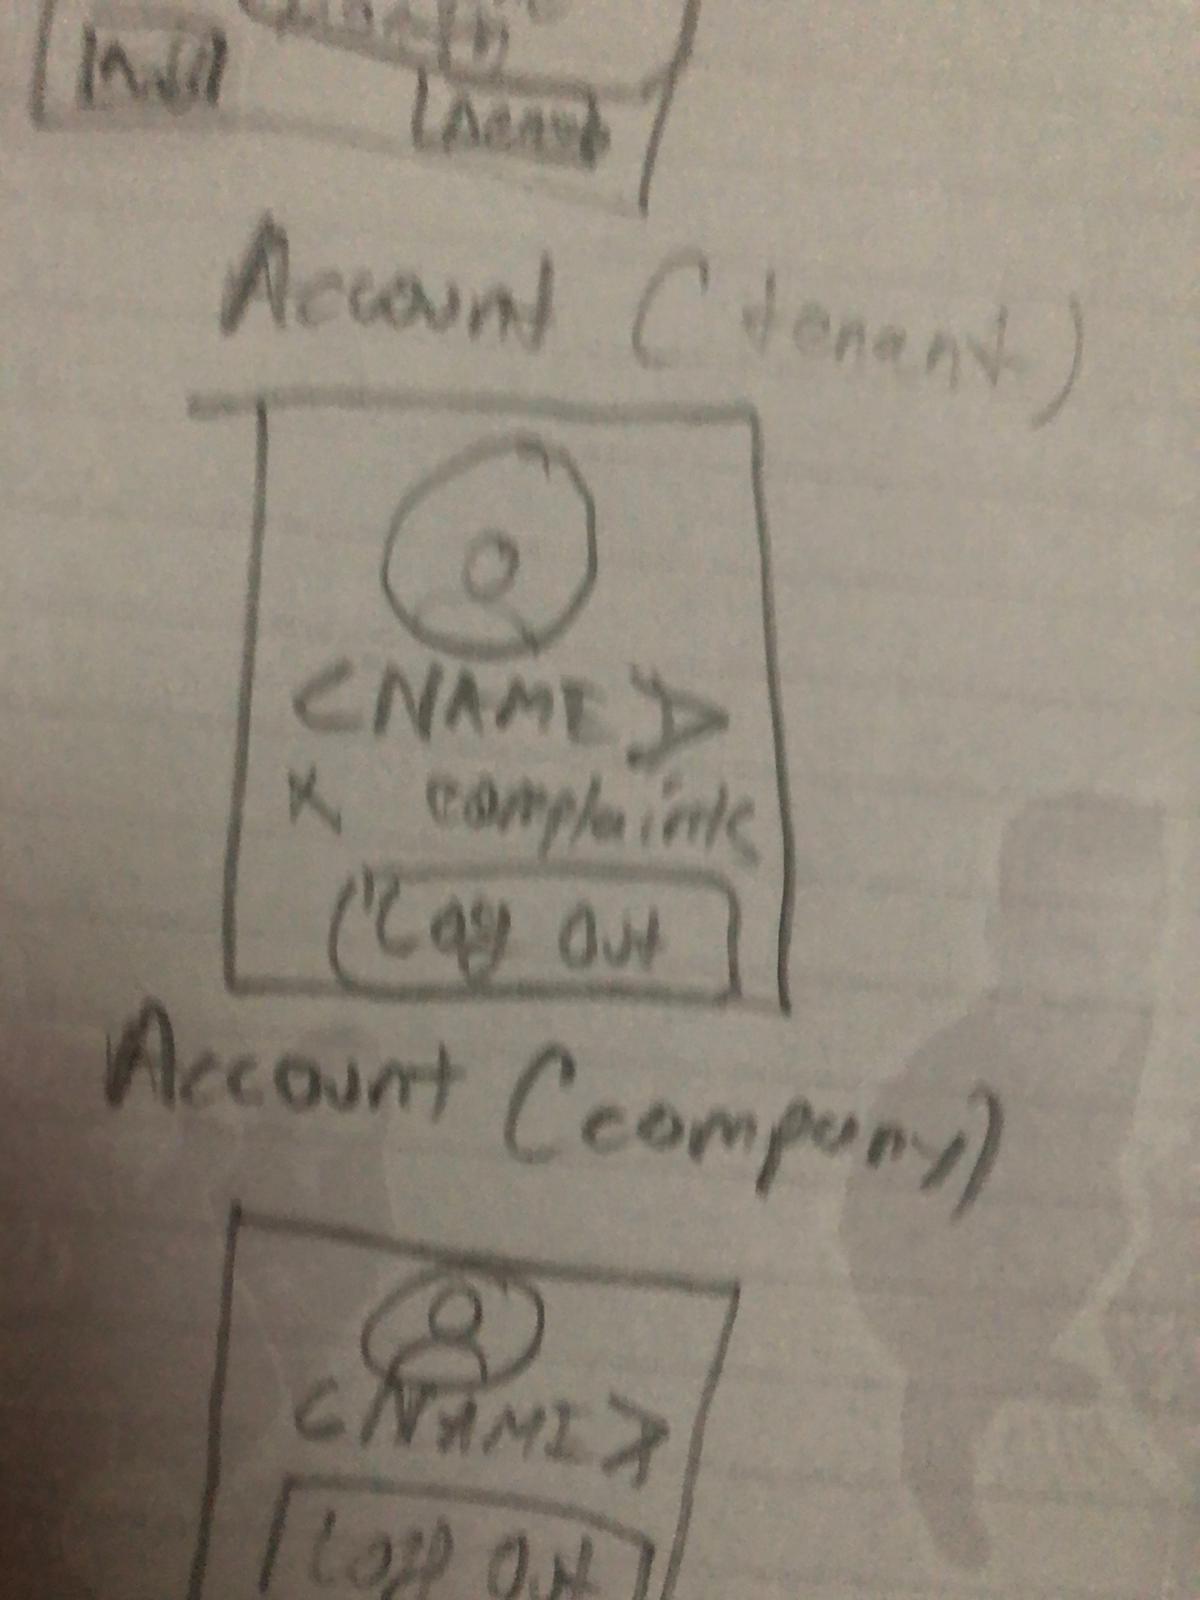 Account (tenant)
<NAME>
X complaints
Log Out
Account (company)
<NAME>
Log Out